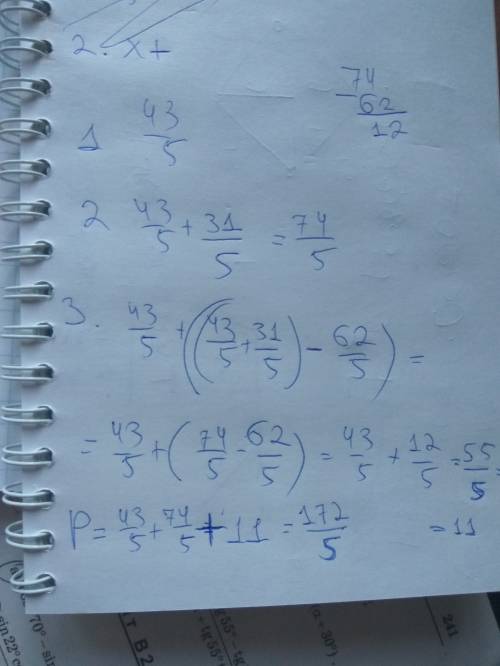 2. x+
74
- 62
12
1 43/5
2 43/5 + 31/5 = 74/5
3. 43/5 + ((43/5 + 31/5) - 62/5) =
= 43/5 + (74/5 - 62/5) = 43/5 + 12/5 = 55/5 =
P = 43/5 + 74/5 + 11 = 172/5 = 11
241
Т В 2